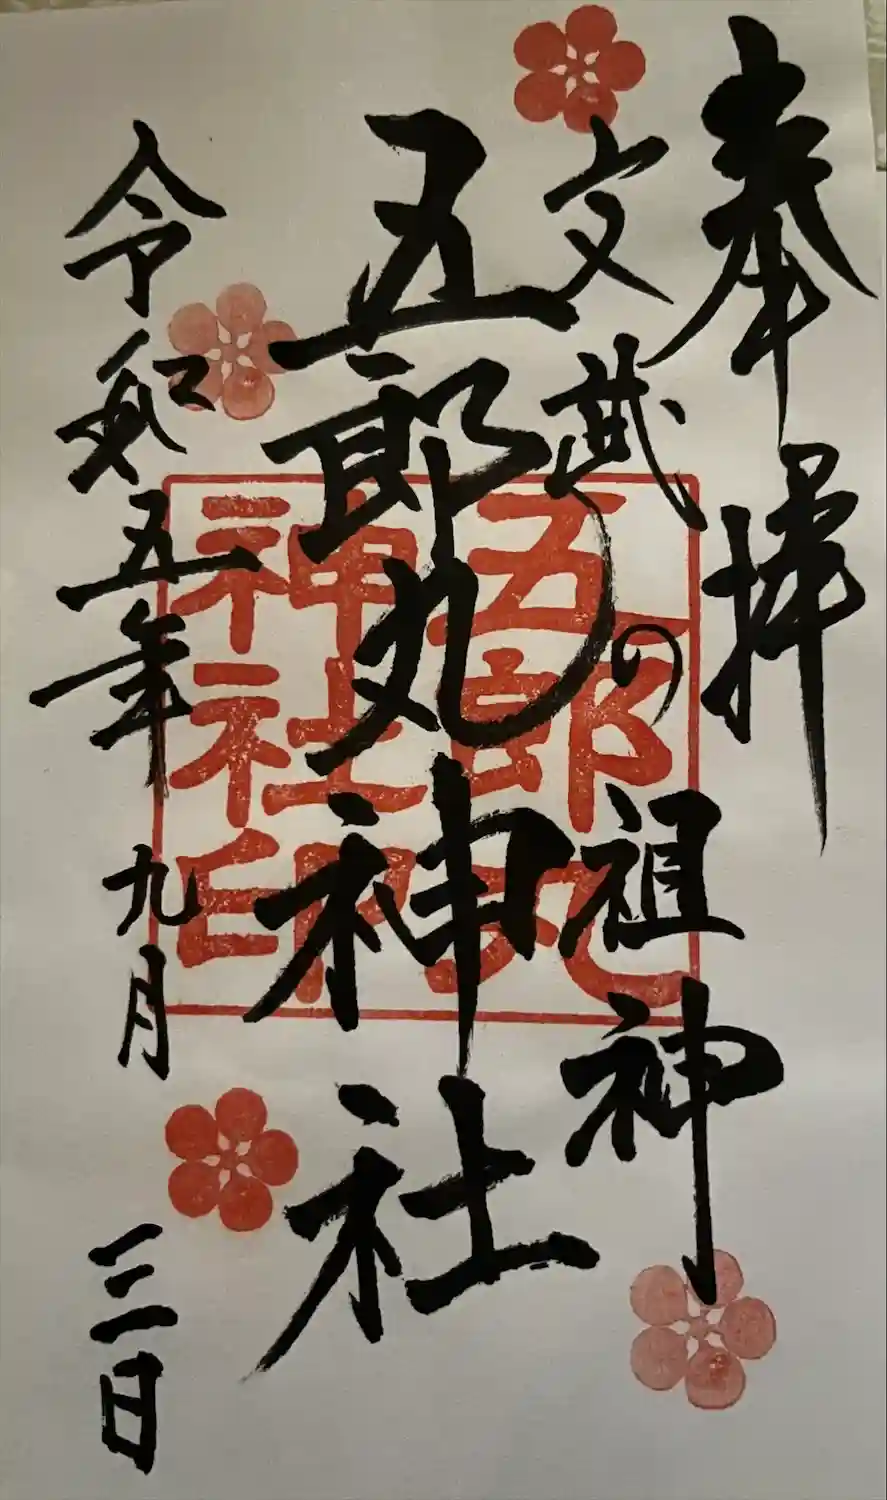 奉拝
文武の祖神
五郎丸神社
五郎丸
神社印
令和五年九月三日